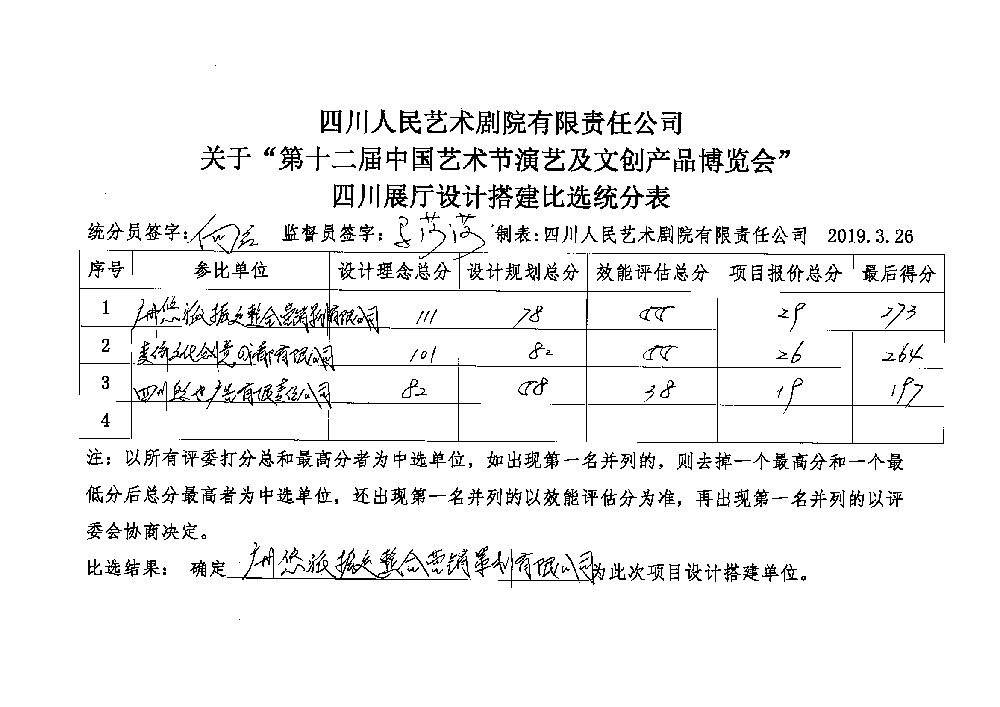 四川人民艺术剧院有限责任公司
关于“第十二届中国艺术节演艺及文创产品博览会”
四川展厅设计搭建比选统分表
统分员签字: 监督员签字: 制表:四川人民艺术剧院有限责任公司 2019.3.26
序号 参比单位 设计理念总分 设计规划总分 效能评估总分 项目报价总分 最后得分
1 广州悠派振文整合营销策划有限公司 111 78 55 29 273
2 文化创意成都有限公司 101 82 55 26 264
3 四川 广告有限责任公司 82 58 38 19 197
4
注:以所有评委打分总和最高分者为中选单位,如出现第一名并列的,则去掉一个最高分和一个最
低分后总分最高者为中选单位,还出现第一名并列的以效能评估分为准,再出现第一名并列的以评
委会协商决定。
比选结果: 确定 广州悠派振文整合营销策划有限公司 为此次项目设计搭建单位。